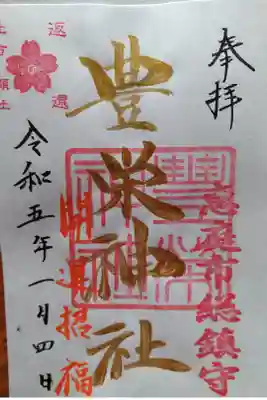 奉拝
恵庭市総鎮守
豊栄神社
開運招福
令和五年一月四日
返還